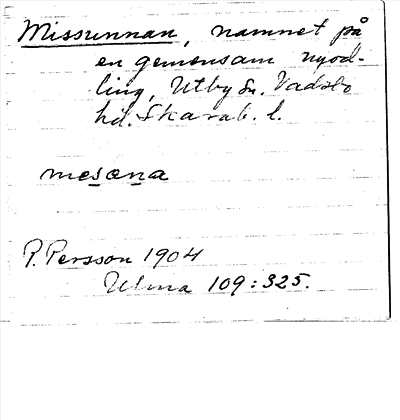 Missunnan, namnet på
en gemensam nyod-
ling, Utby sn. Vadsbo
hd. Skarab. l.
mesona
P. Persson 1904
Ulma 109:325.